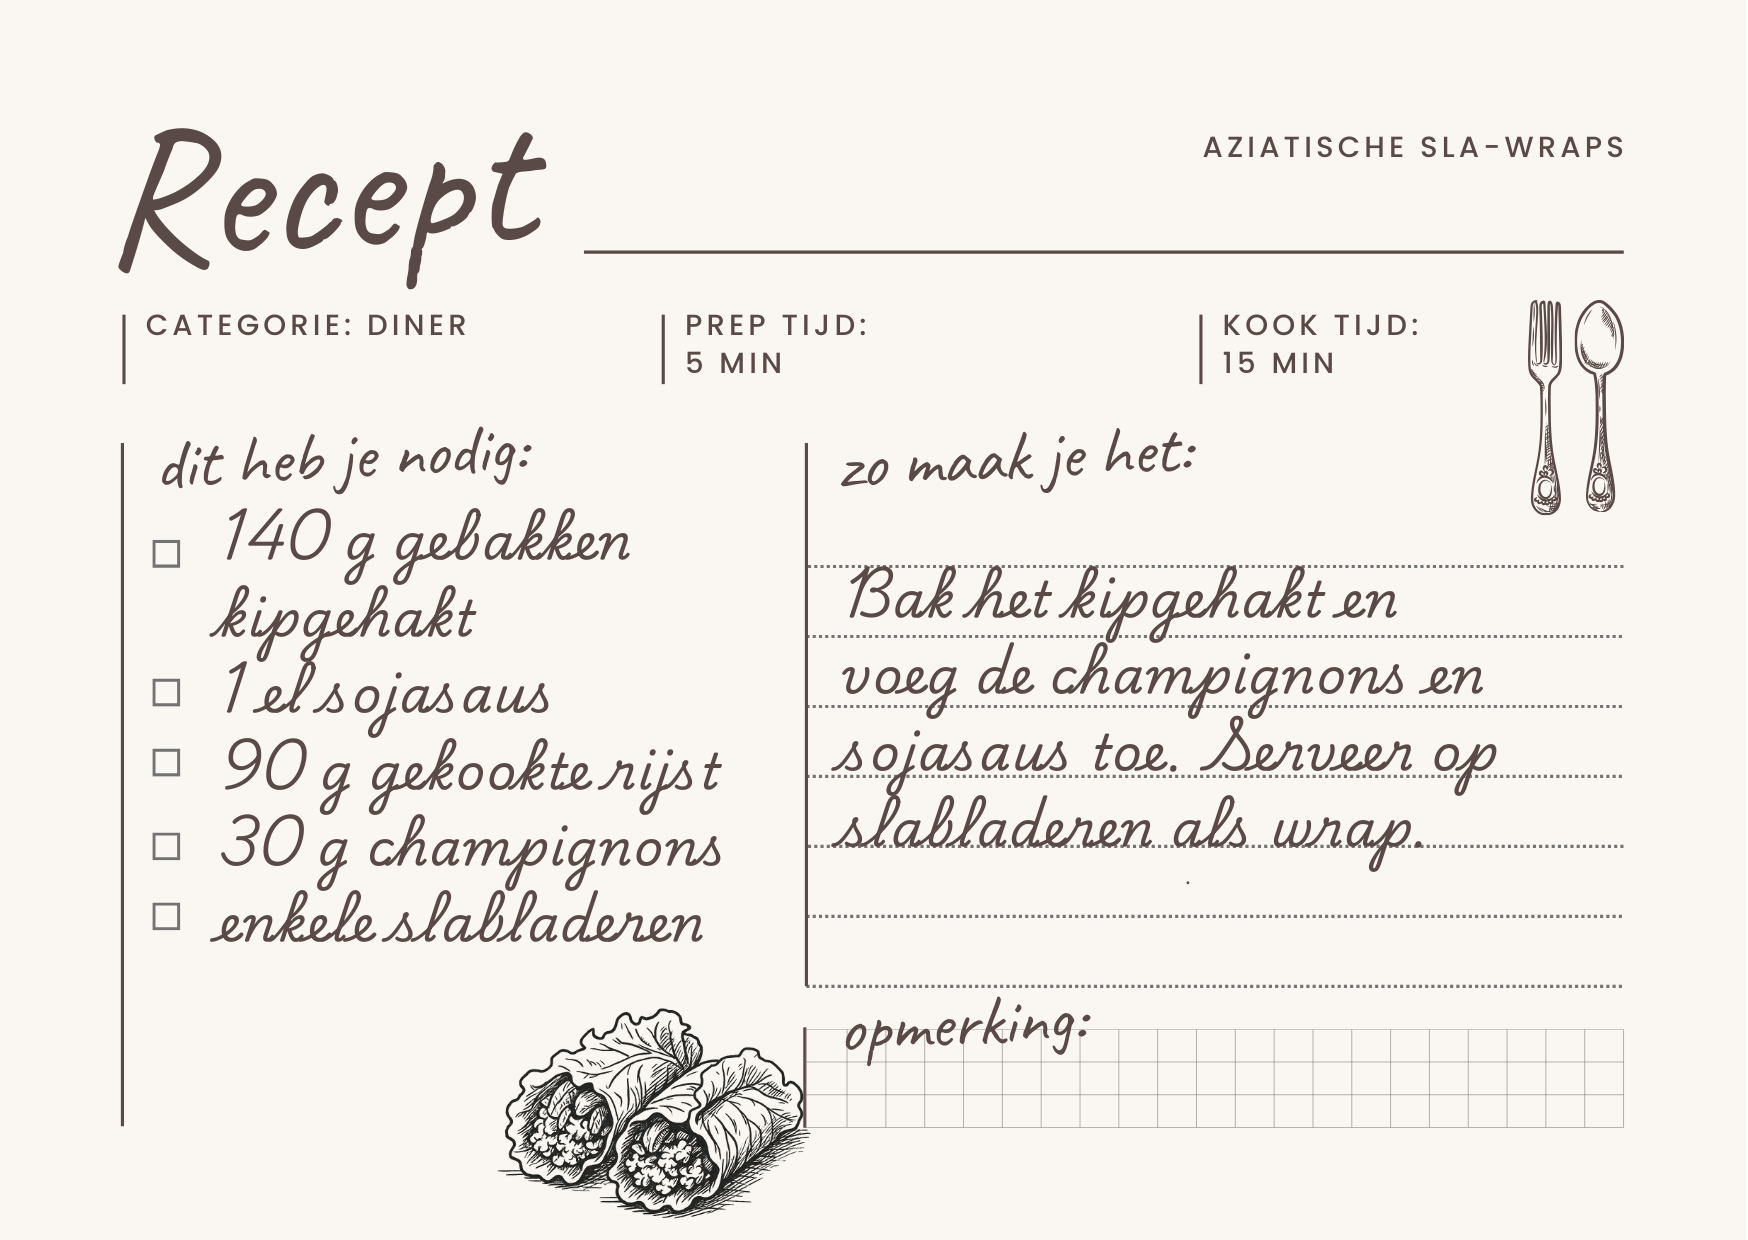 Recept
AZIATISCHE SLA-WRAPS
CATEGORIE: DINER
PREP TIJD:
5 MIN
KOOK TIJD:
15 MIN
dit heb je nodig:
140 g gebakken
kipgehakt
1 el sojasaus
90 g gekookte rijst
30 g champignons
enkele slabladeren
zo maak je het:
Bak het kipgehakt en
voeg de champignons en
sojasaus toe. Serveer op
slabladeren als wrap.
.
opmerking: